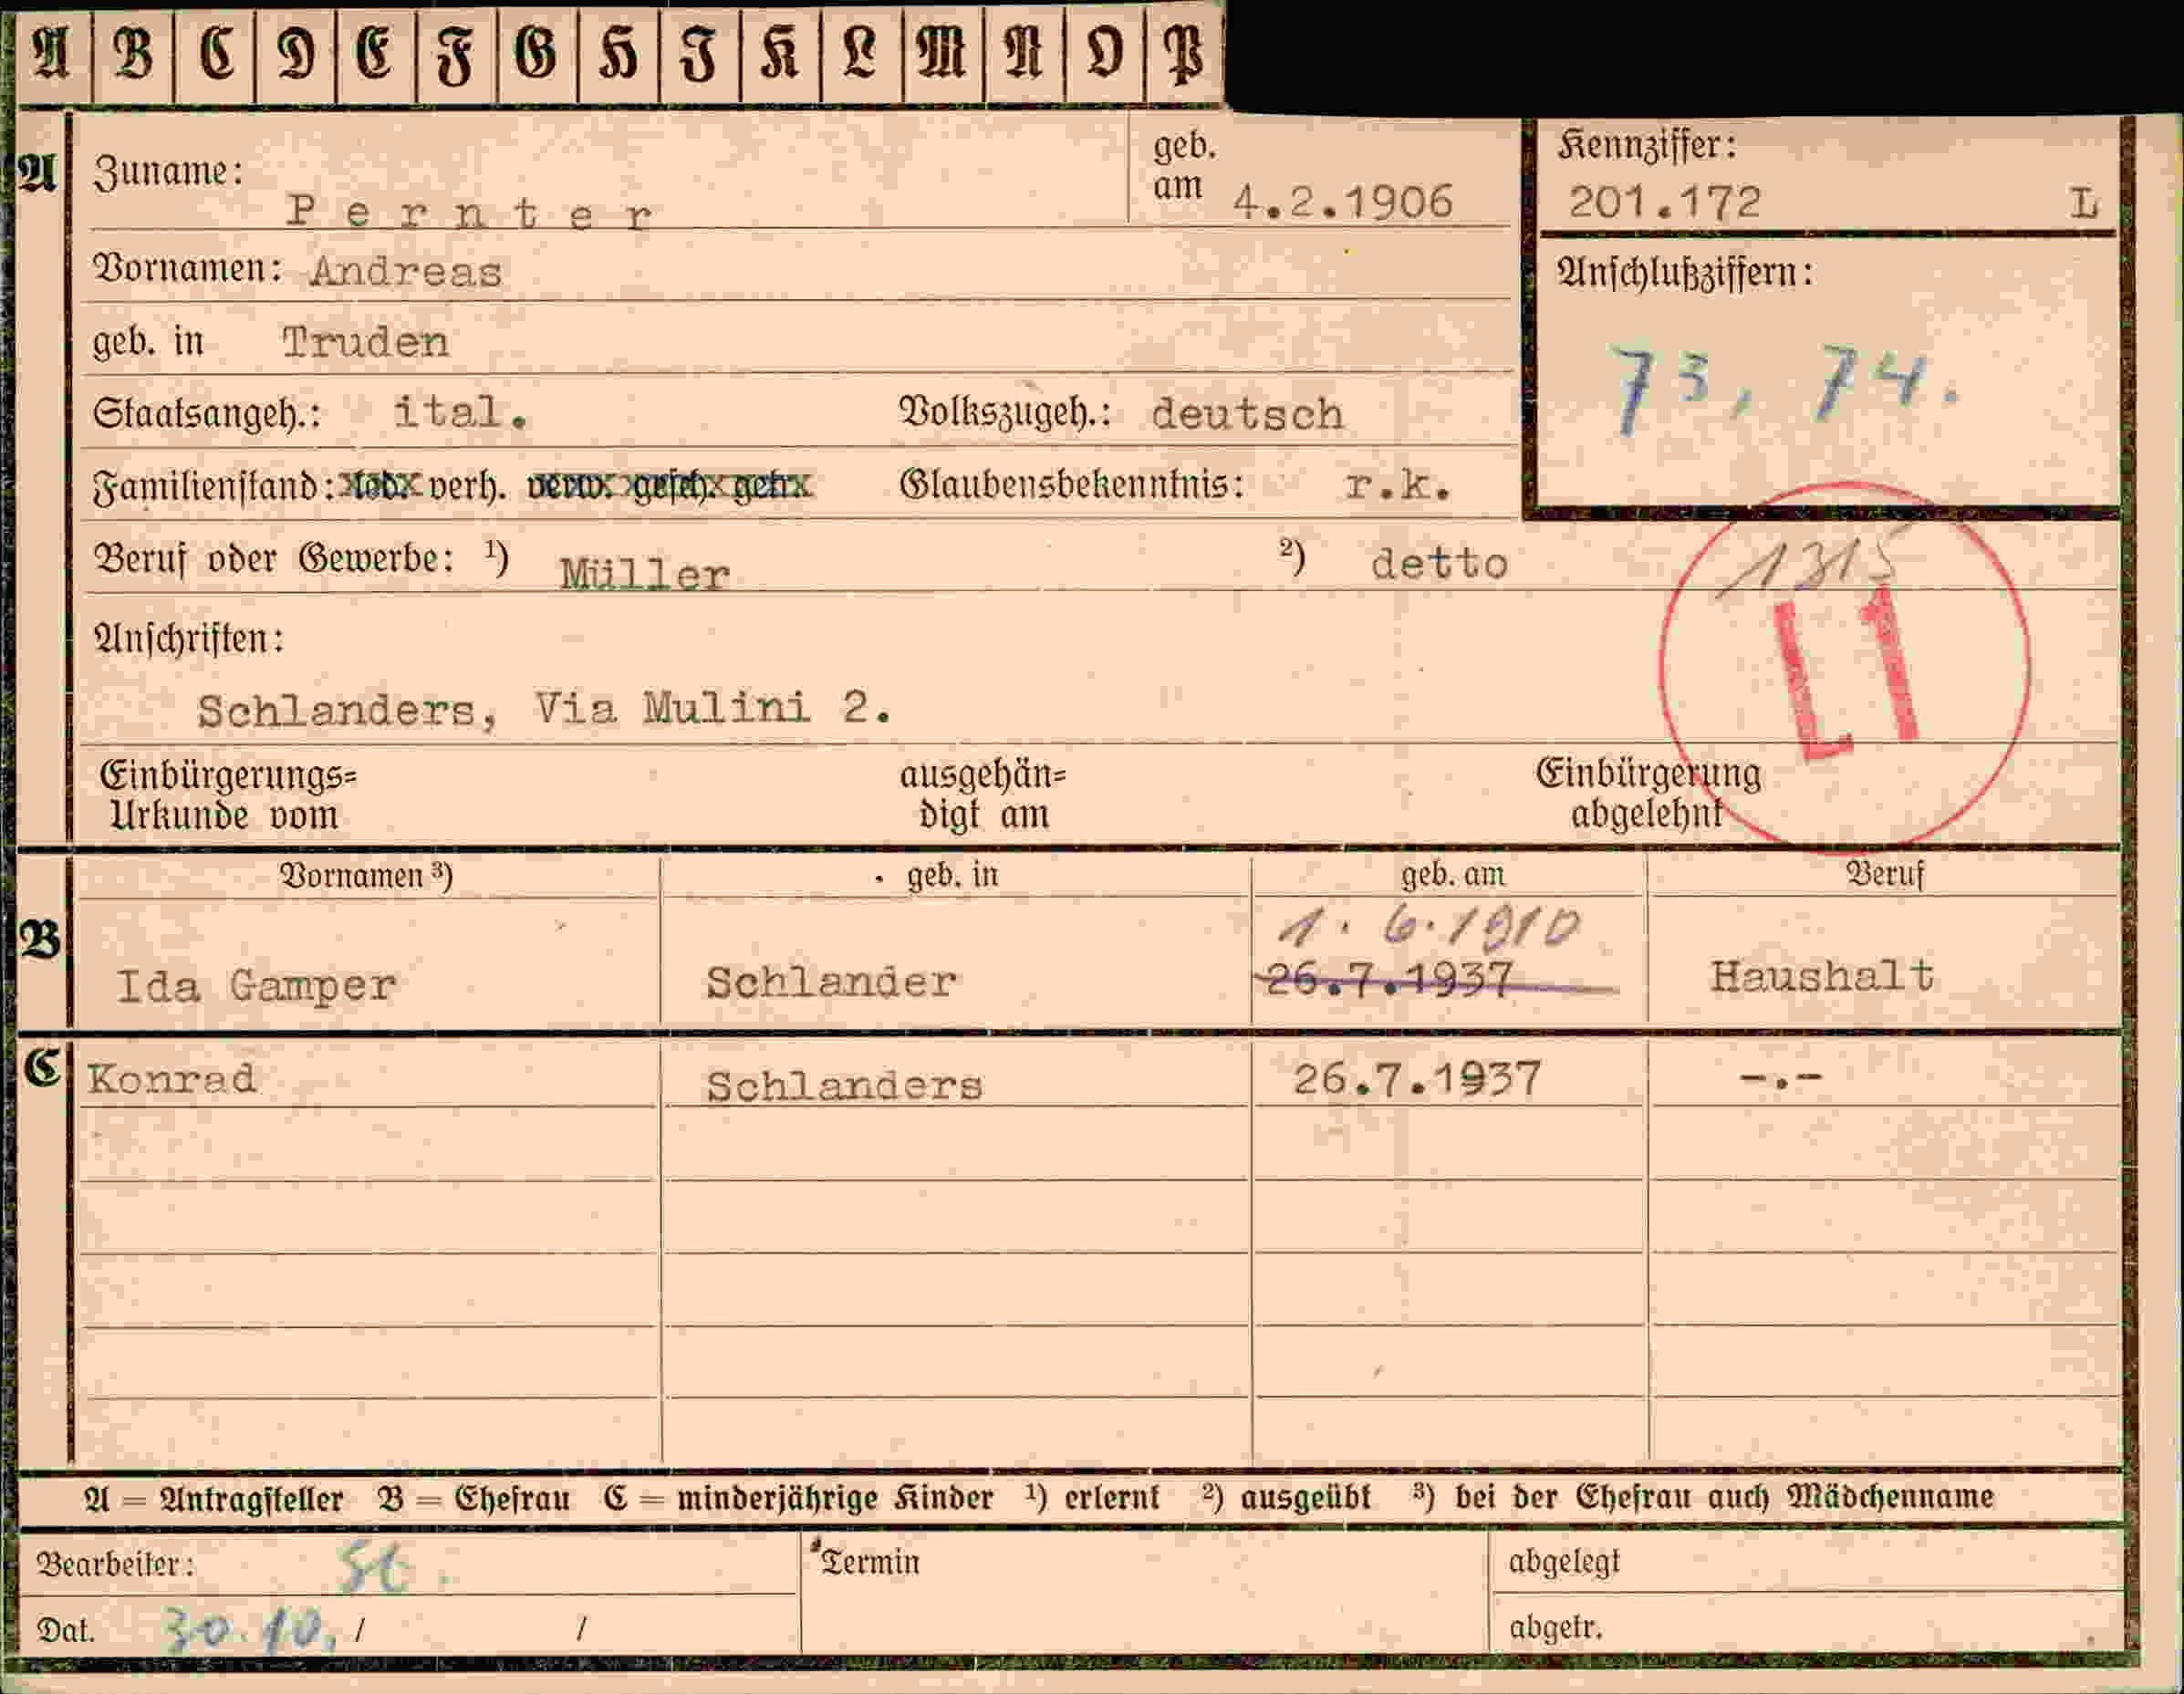 A B C D E F G H I K L M N O P
A Zuname: Pernter geb. am 4.2.1906
Kennziffer: 201.172 L
Vornamen: Andreas
Anschlußziffern: 73, 74.
geb. in Truden
Staatsangeh.: ital. Volkszugeh.: deutsch
Familienstand: led. verh. verw. gesch. getr. Glaubensbekenntnis: r.k.
Beruf oder Gewerbe: ¹) Müller ²) detto
1315
L1
Anschriften:
Schlanders, Via Mulini 2.
Einbürgerungs= ausgehän= Einbürgerung
Urkunde vom digt am abgelehnt
Vornamen ³) geb. in geb. am Beruf
1.6.1910
B Ida Gamper Schlander 26.7.1937 Haushalt
C Konrad Schlanders 26.7.1937 -.-
A = Antragsteller B = Ehefrau C = minderjährige Kinder ¹) erlernt ²) ausgeübt ³) bei der Ehefrau auch Mädchenname
Bearbeiter: St. Termin abgelegt
Dat. 30.10. / / abgetr.